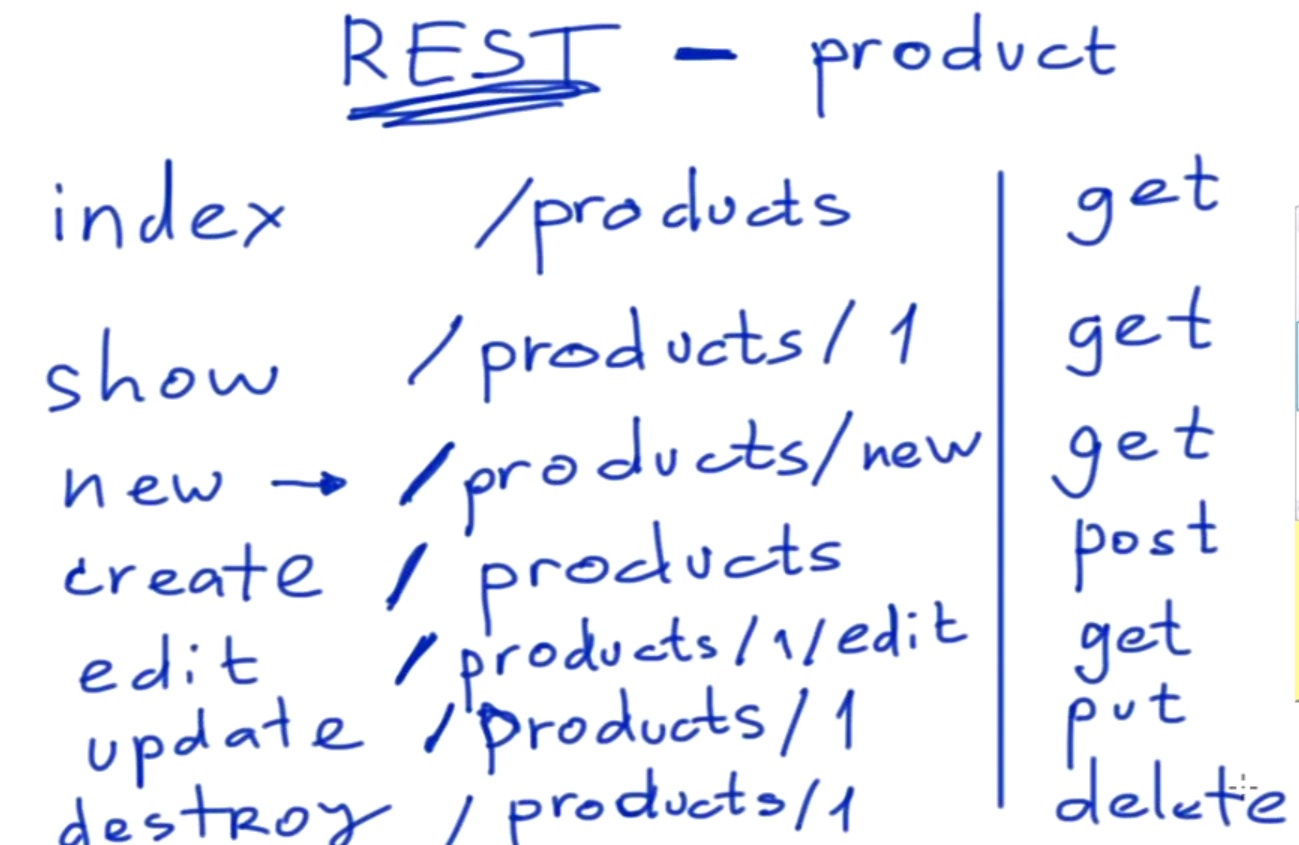 REST - product
index /products get
show /products/1 get
new → /products/new get
create /products post
edit /products/1/edit get
update /products/1 put
destroy /products/1 delete